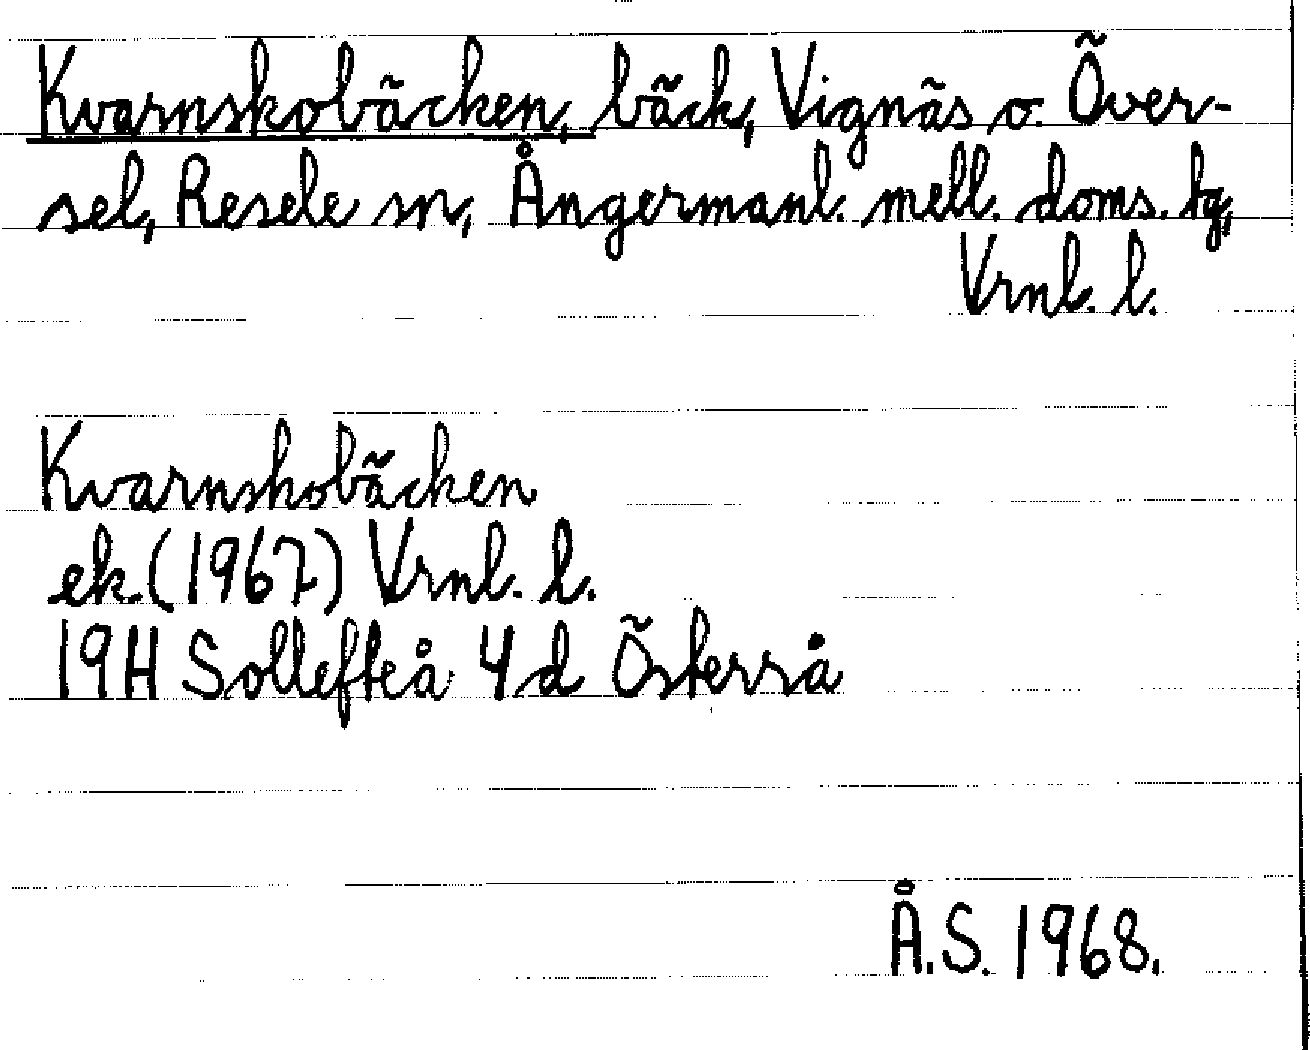 Kvarnskobäcken, bäck, Vignäs o. Över-
sel, Resele sn, Ångermanl. mell. doms. tg,
Vrnl. l.
Kvarnskobäcken
ek. (1967) Vrnl. l.
19H Sollefteå 4d Österrå
Å.S. 1968.